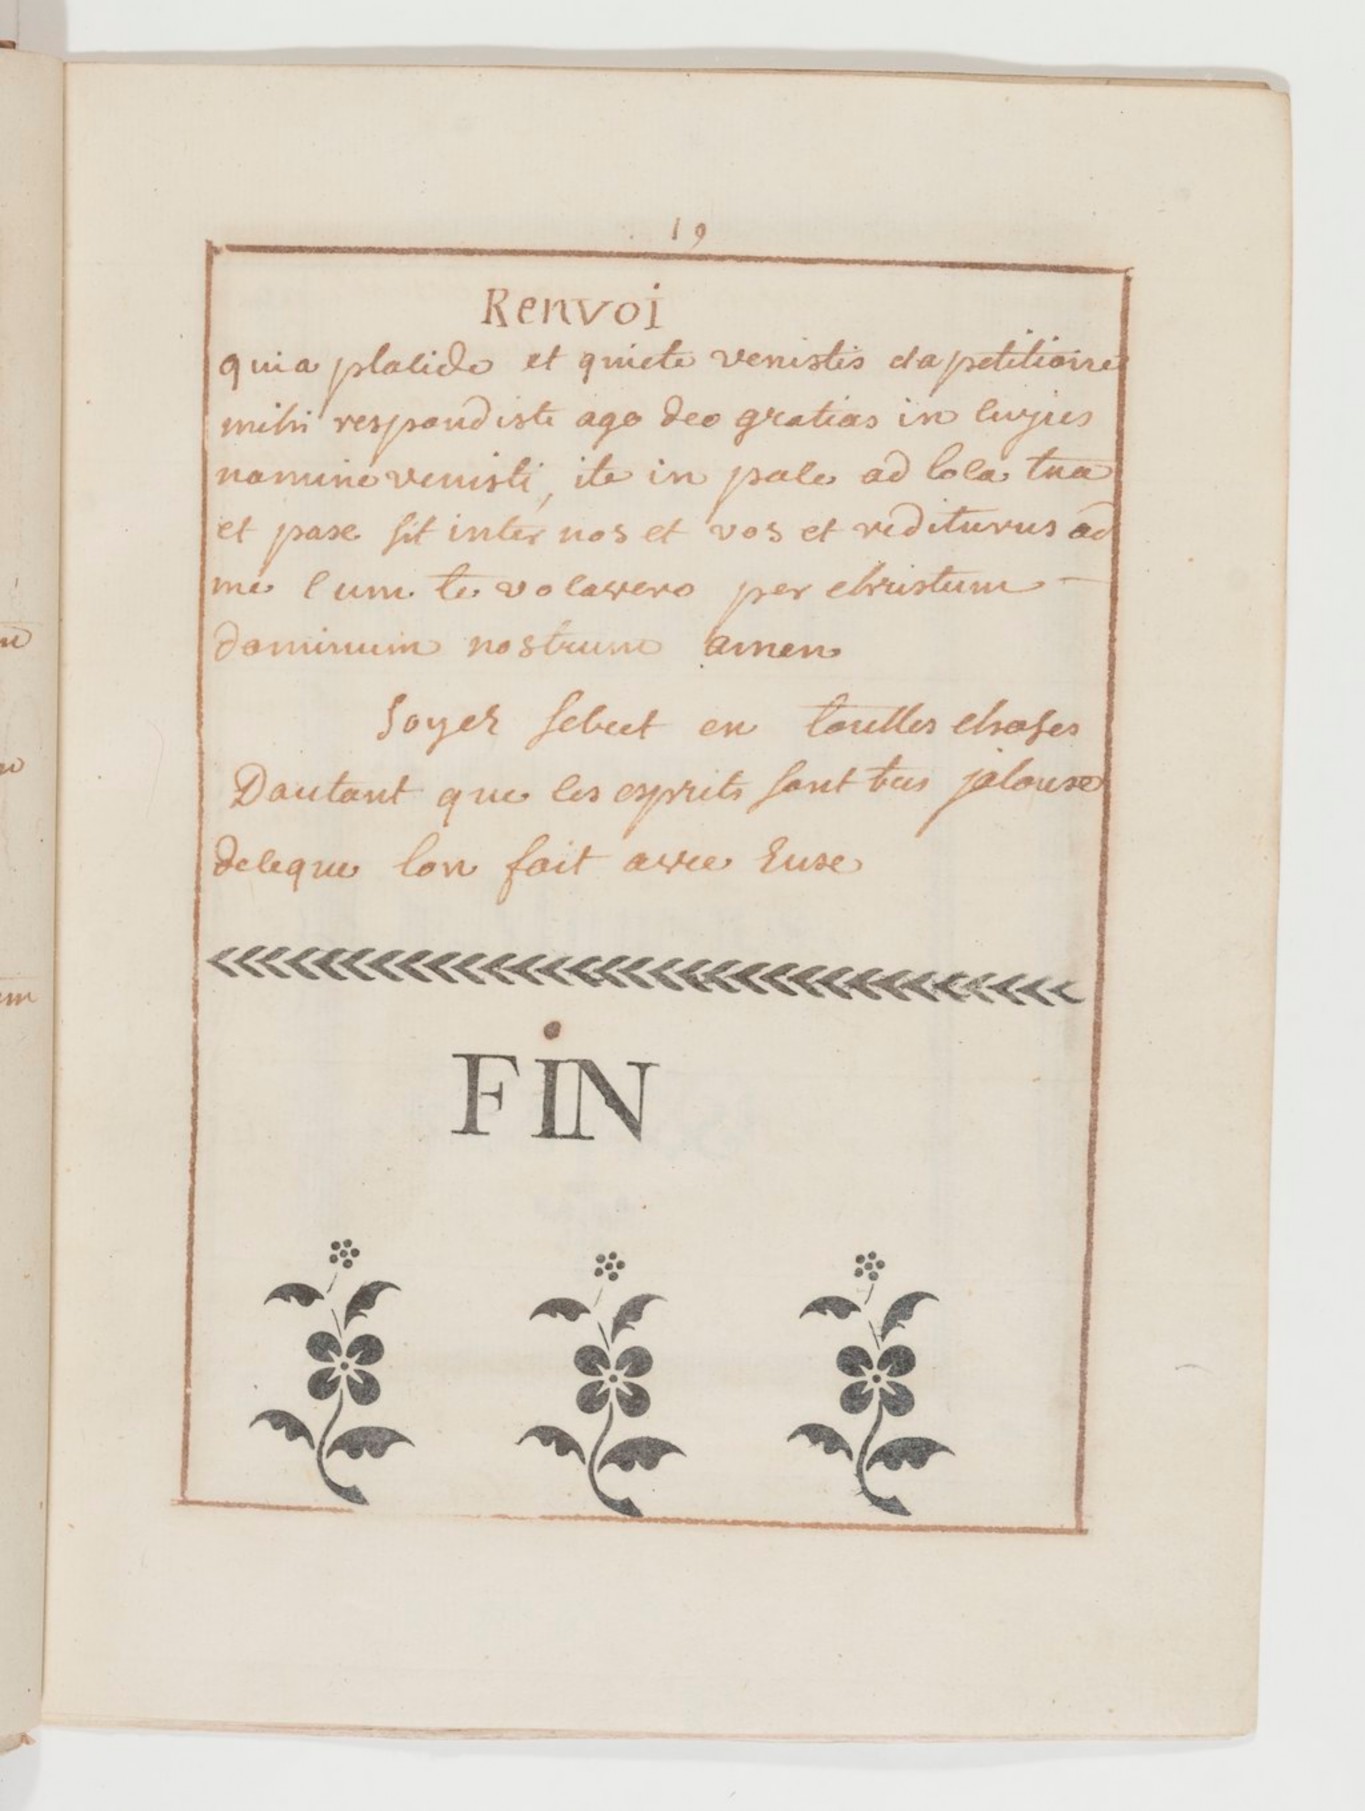 19
Renvoi
quia placide et quiete venistis et a petitione
mihi respondisti ago deo gratias in cujus
nomine venisti, ite in pace ad loca tua
et paxe sit inter nos et vos et rediturus ad
me cum te vocavero per christum
dominum nostrum amen
soyez secret en touttes choses
Dautant que les esprits sont tres jalouxe
deceque lon fait avec Euxe
FIN